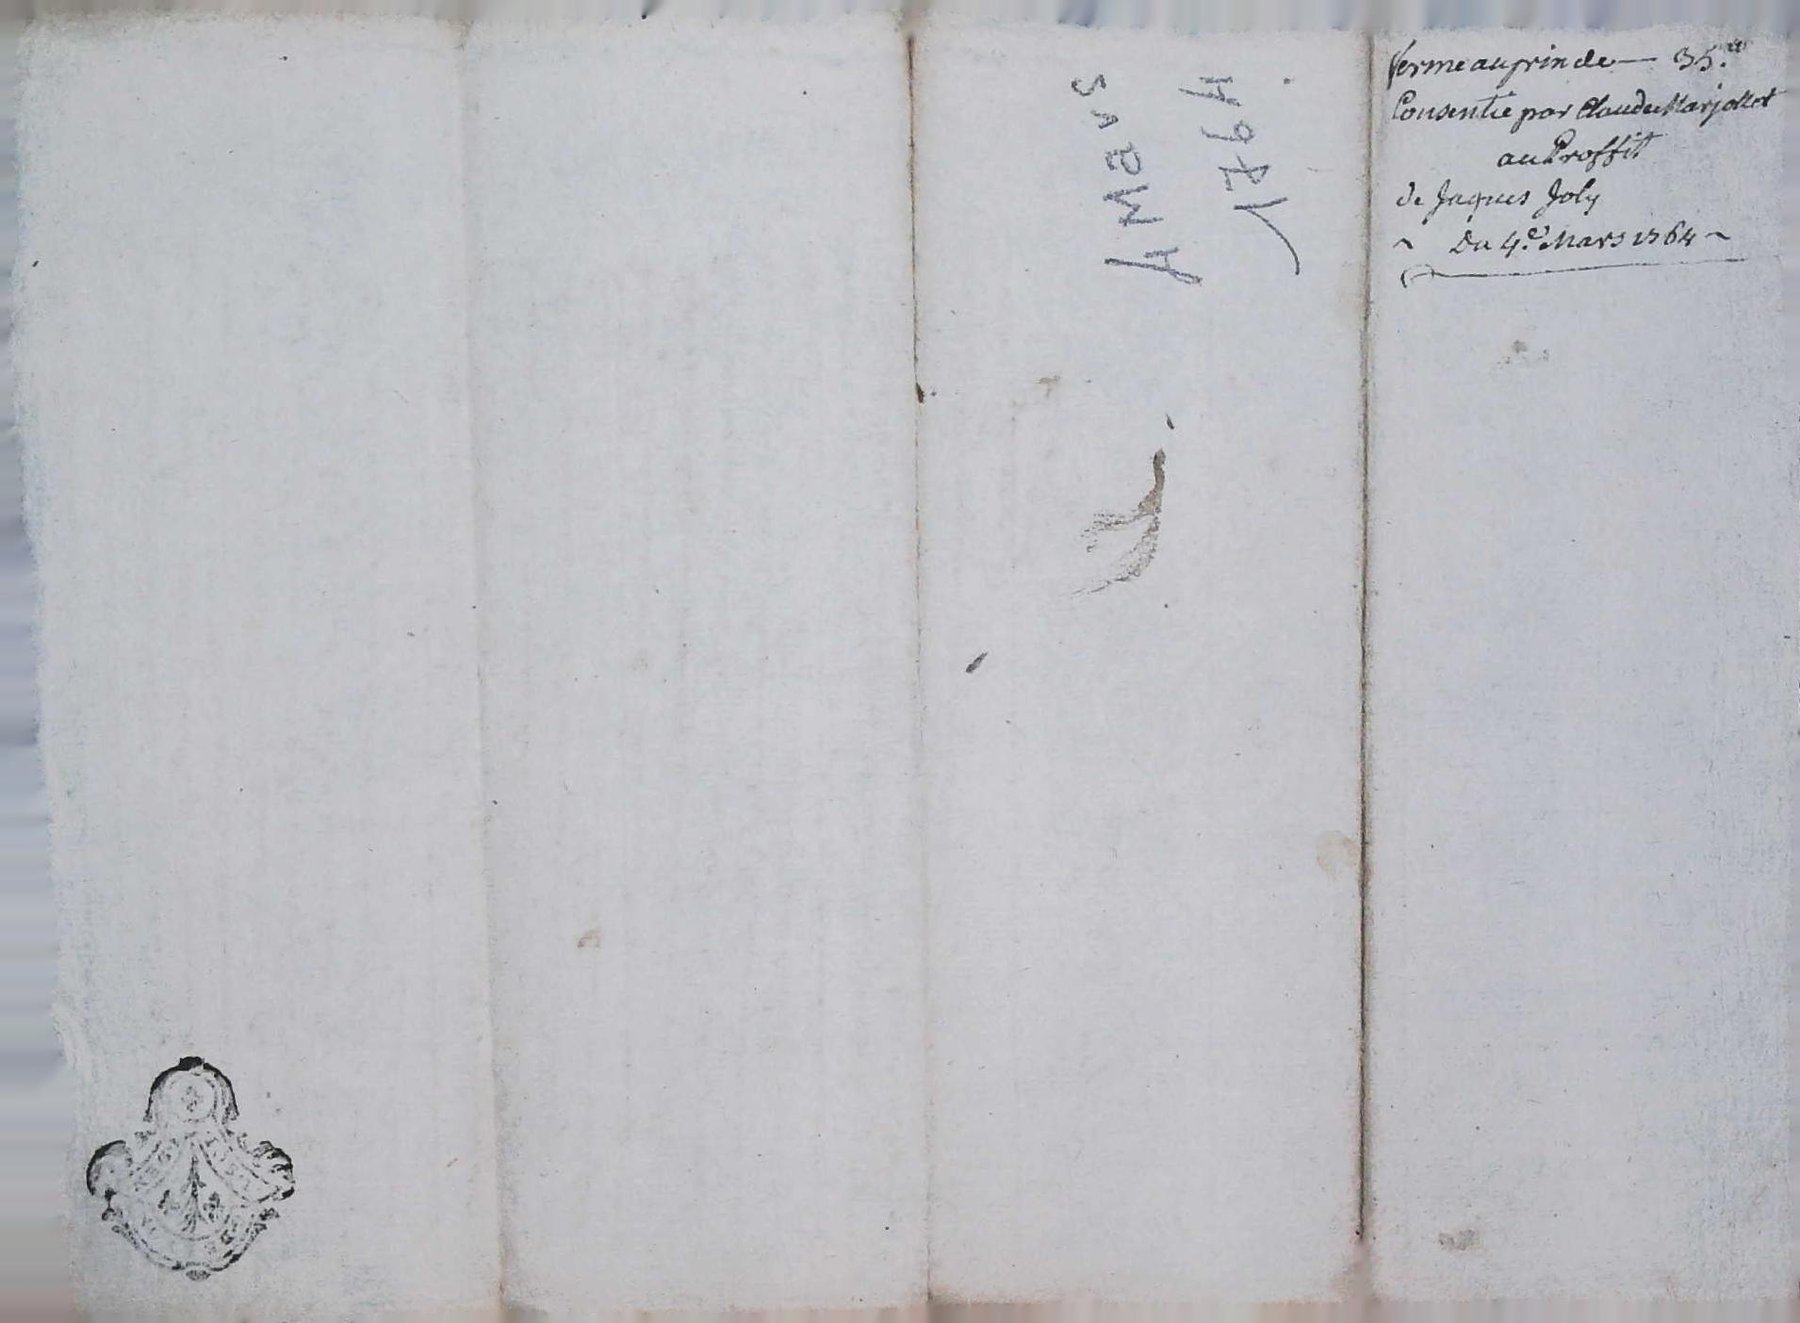 ferme au prin de — 35.ᵗᵗ
Consentie par Claude Marjollet
au Proffit
de Jaques Joly
~ Du 4.ᵉ Mars 1764 ~
1764
4 Mars